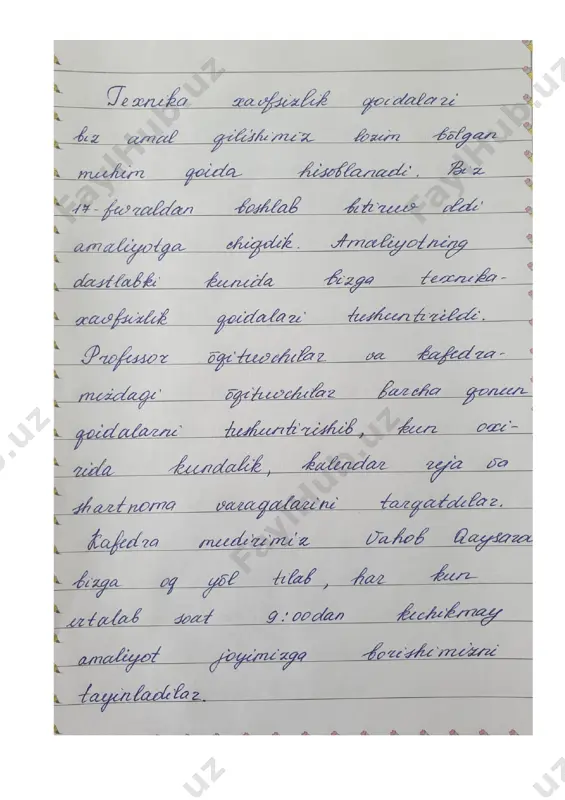 Texnika xavfsizlik qoidalari
biz amal qilishimiz lozim bõlgan
muhim qoida hisoblanadi. Biz
17-fevraldan boshlab bitiruv oldi
amaliyotga chiqdik. Amaliyotning
dastlabki kunida bizga texnika-
xavfsizlik qoidalari tushuntirildi.
Professor õqituvchilar va kafedra-
mizdagi õqituvchilar barcha qonun
qoidalarni tushuntirishib, kun oxi-
rida kundalik, kalendar reja va
shartnoma varaqalarini tarqatdilar.
Kafedra mudirimiz Vahob Qaysara
bizga oq yõl tilab, har kun
ertalab soat 9:00dan kechikmay
amaliyot joyimizga borishimizni
tayinladilar.
FaylHub.uz
FaylHub.uz
FaylHub.uz
b.uz
uz
uz